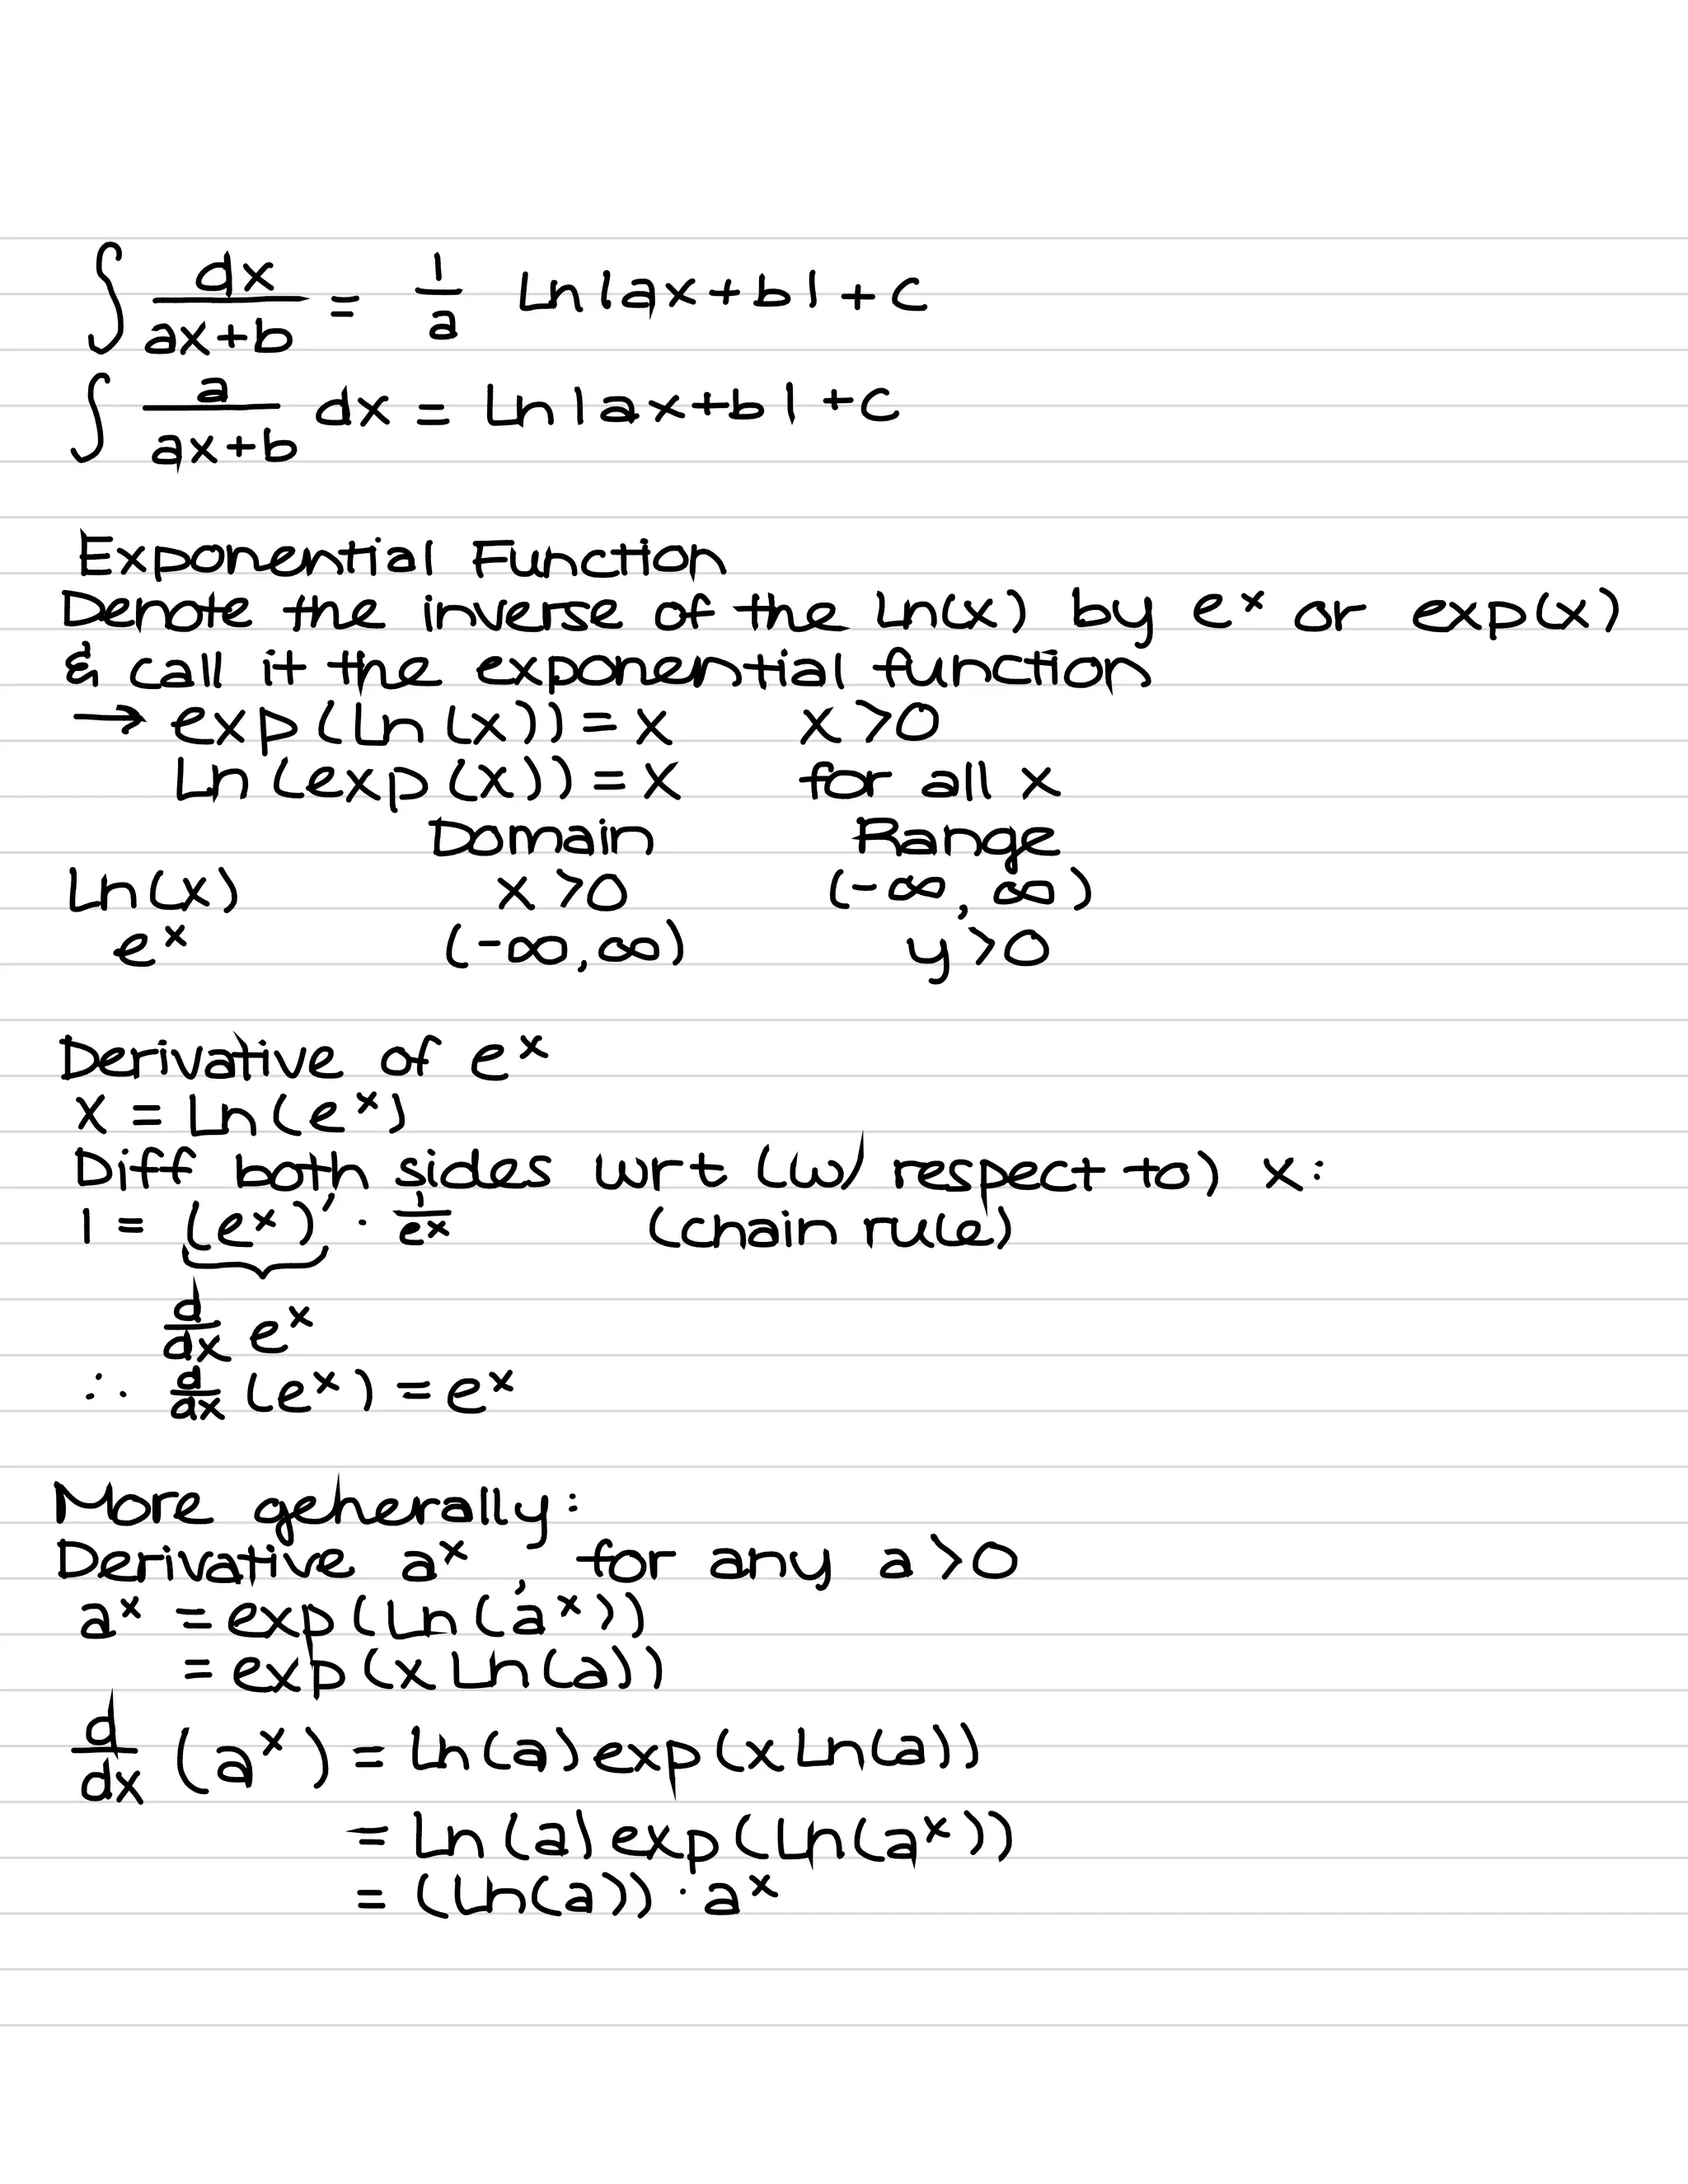 ∫ dx/(ax+b) = 1/a Ln|ax+b| + C
∫ a/(ax+b) dx = Ln|ax+b| + C
Exponential Function
Denote the inverse of the Ln(x) by eˣ or exp(x)
& call it the exponential function
→ exp(Ln(x)) = x x>0
Ln(exp(x)) = x for all x
Domain Range
Ln(x) x>0 (-∞, ∞)
eˣ (-∞, ∞) y>0
Derivative of eˣ
x = Ln(eˣ)
Diff both sides wrt (w/ respect to) x:
1 = (eˣ)' · 1/eˣ (chain rule)
d/dx eˣ
∴ d/dx (eˣ) = eˣ
More generally:
Derivative aˣ, for any a>0
aˣ = exp(Ln(aˣ))
= exp(x Ln(a))
d/dx (aˣ) = Ln(a) exp(x Ln(a))
= Ln(a) exp(Ln(aˣ))
= (Ln(a)) · aˣ